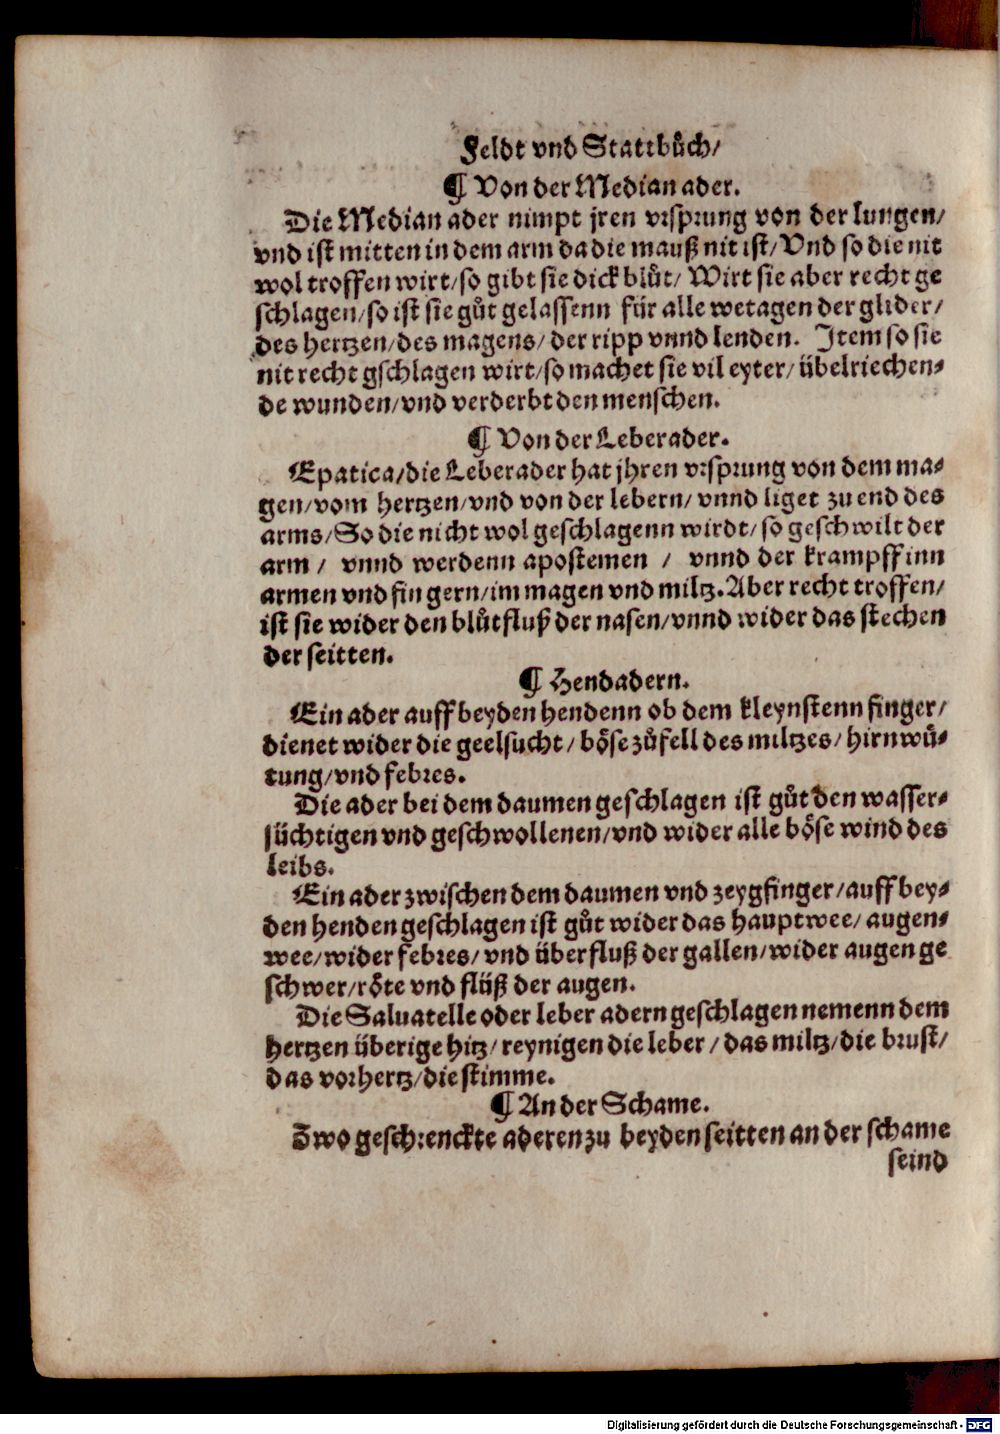 Feldt vnd Stattbuͦch/
¶ Von der Median ader.
Die Median ader nimpt jren vrsprung von der lungen/
vnd ist mitten in dem arm da die mauß nit ist/ Vnd so die nit
wol troffen wirt/ so gibt sie dick bluͦt/ Wirt sie aber recht ge
schlagen/ so ist sie guͦt gelassenn für alle wetagen der glider/
des hertzen/ des magens/ der ripp vnnd lenden. Item so sie
nit recht gschlagen wirt/ so machet sie vil eyter/ übelriechen⸗
de wunden/ vnd verderbt den menschen.
¶ Von der Leberader.
Epatica/ die Leberader hat jhren vrsprung von dem ma⸗
gen/ vom hertzen/ vnd von der lebern/ vnnd liget zu end des
arms/ So die nicht wol geschlagenn wirdt/ so geschwilt der
arm / vnnd werdenn apostemen / vnnd der krampff inn
armen vnd fingern/ im magen vnd miltz. Aber recht troffen/
ist sie wider den bluͦtfluß der nasen/ vnnd wider das stechen
der seitten.
¶ Hendadern.
Ein ader auff beyden hendenn ob dem kleynstenn finger/
dienet wider die geelsucht/ böse zuͦfell des miltzes/ hirnwuͤ⸗
tung/ vnd febres.
Die ader bei dem daumen geschlagen ist guͦt den wasser⸗
süchtigen vnd geschwollenen/ vnd wider alle böse wind des
leibs.
Ein ader zwischen dem daumen vnd zeygfinger/ auff bey⸗
den henden geschlagen ist guͦt wider das hauptwee/ augen⸗
wee/ wider febres/ vnd überfluß der gallen/ wider augen ge
schwer/ röte vnd flüß der augen.
Die Saluatelle oder leber adern geschlagen nemenn dem
hertzen überige hitz/ reynigen die leber/ das miltz/ die brust/
das vorhertz/ die stimme.
¶ An der Schame.
Zwo geschrenckte aderen zu beyden seitten an der schame
seind
Digitalisierung gefördert durch die Deutsche Forschungsgemeinschaft - DFG